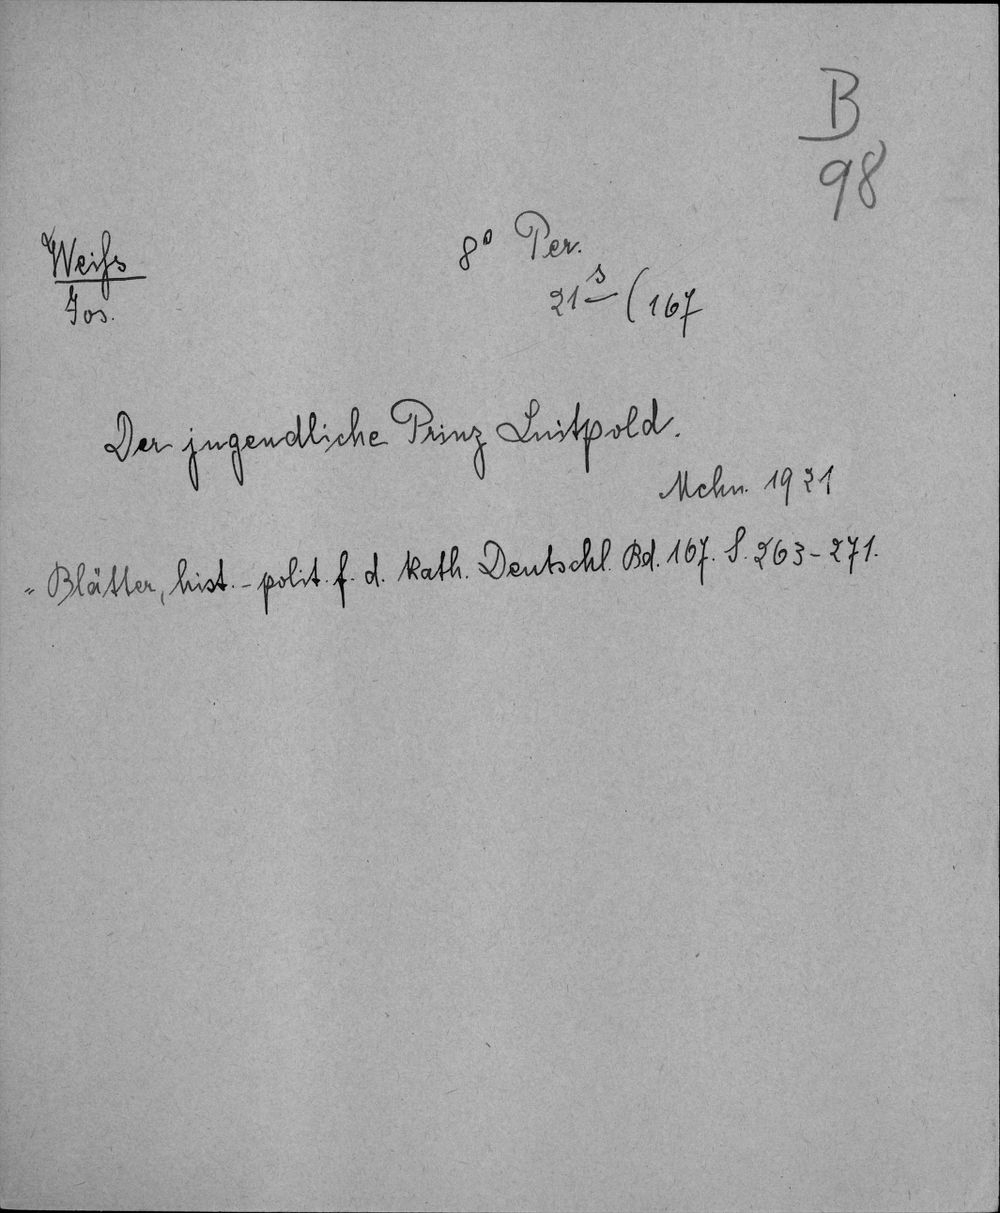 B
98
Weiß
Jos.
8° Per.
21 s (167
Der jugendliche Prinz Luitpold.
Mchn. 1921
„Blätter, hist.-polit. f. d. kath. Deutschl. Bd. 167. S. 263-271.